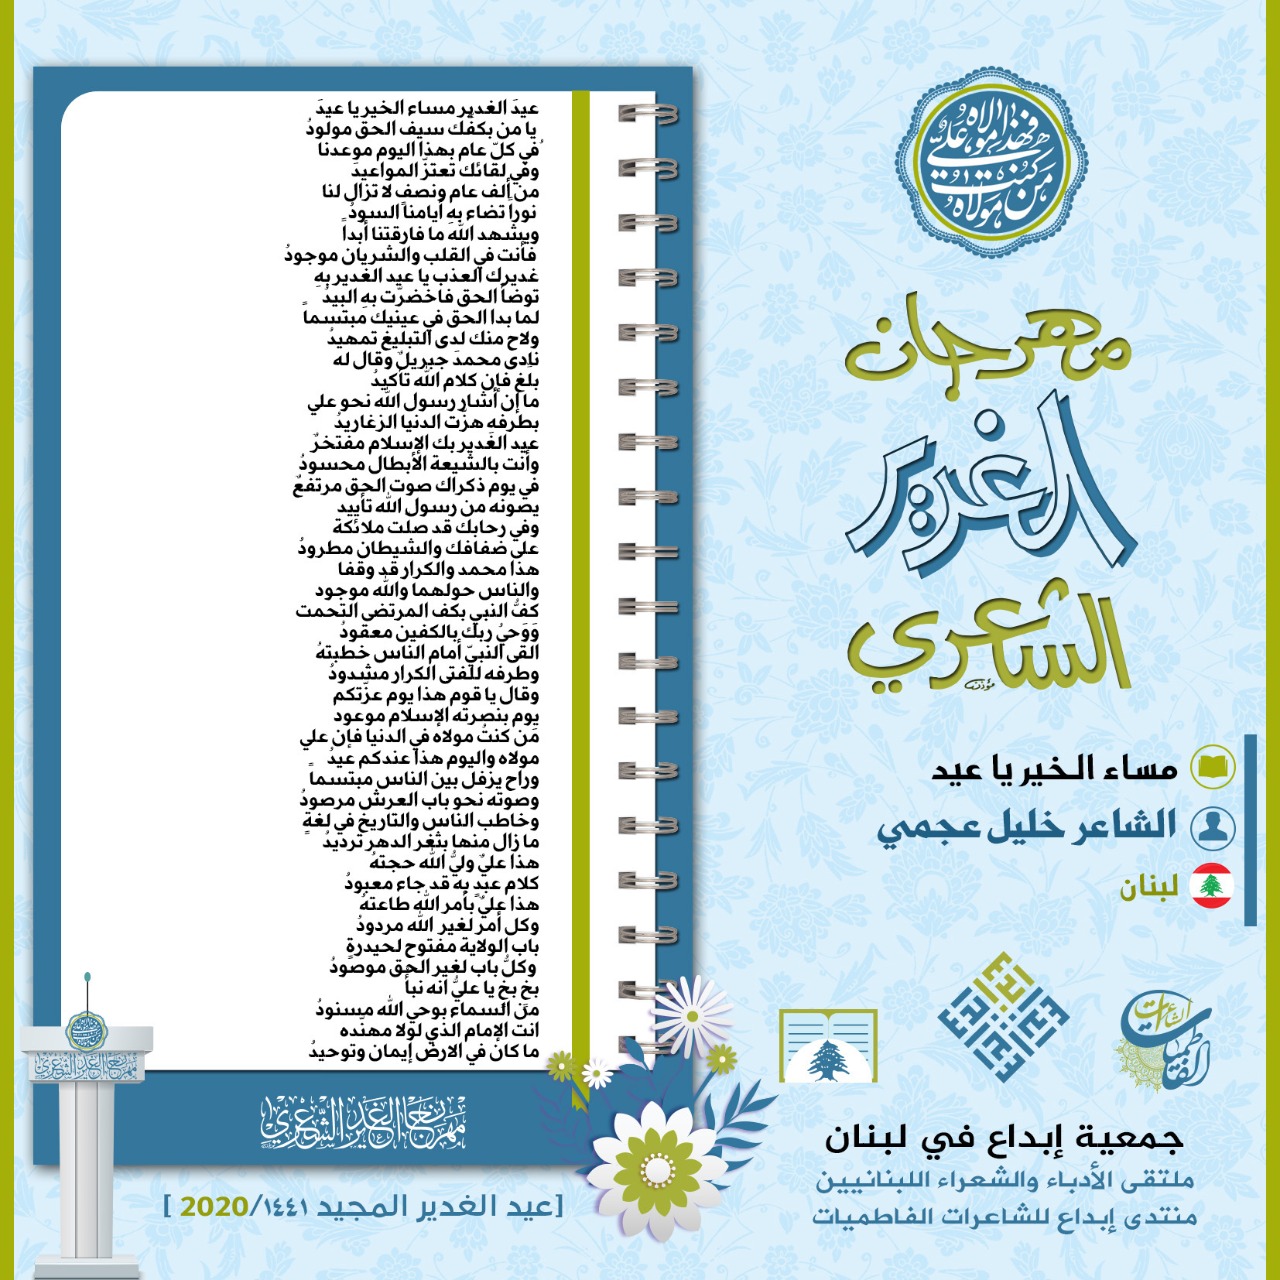 من كنت مولاه
فهذا مولاه علي
مهرجان
الغدير
الشعري
مساء الخير يا عيد
الشاعر خليل عجمي
لبنان
عيدَ الغدير مساء الخير يا عيدَ
يا من بكفّك سيف الحق مولودُ
في كلّ عام بهذا اليوم موعدنا
وفي لقائك تعتزّ المواعيدَ
من ألف عام ونصفٍ لا تزال لنا
نوراً تضاء بهِ أيامناَ السودُ
ويشهد الله ما فارقتنا أبداً
فأنت في القلب والشريان موجودُ
غديرك العذب يا عيد الغدير بهِ
توضأ الحق فاخضرّت بهِ البيدُ
لما بدا الحق في عينيك مبتسماً
ولاح منك لدى التبليغ تمهيدُ
نادى محمدَ جبريلٌ وقال له
بلّغ فإن كلام الله تأكيدُ
ما إن أشار رسول الله نحو علي
بطرفهِ هزّت الدنيا الزغاريدُ
عيد الغدير بك الإسلام مفتخرٌ
وأنت بالشيعة الأبطال محسودُ
في يوم ذكراك صوت الحق مرتفعٌ
يصونه من رسول الله تأييد
وفي رحابك قد صلت ملائكة
على ضفافك والشيطان مطرودُ
هذا محمد والكرار قد وقفا
والناس حولهما والله موجود
كفُّ النبي بكف المرتضى التحمت
وَوَحيُ ربك بالكفين معقودُ
القى النبيّ أمام الناس خطبتهُ
وطرفه للفتى الكرار مشدودُ
وقال يا قوم هذا يوم عزّتكم
يوم بنصرته الإسلام موعود
مَن كنتُ مولاه في الدنيا فإن علي
مولاه واليوم هذا عندكم عيدُ
وراح يزفل بين الناس مبتسماً
وصوته نحو باب العرش مرصودُ
وخاطب الناس والتاريخ في لغةٍ
ما زال منها بثغر الدهر ترديدُ
هذا عليٌ وليُّ الله حجتهُ
كلام عبدٍ بهِ قد جاء معبودُ
هذا عليٌ بأمر الله طاعتهُ
وكل أمر لغير الله مردودُ
باب الولاية مفتوح لحيدرةٍ
وكلُّ باب لغير الحق موصودُ
بخٍ بخٍ يا عليُّ انه نبأ
من السماء بوحي الله مسنودُ
انت الإمام الذي لولا مهنّده
ما كان في الارض إيمان وتوحيدُ
مهرجان الغدير الشعري
مهرجان الغدير الشعري
[عيد الغدير المجيد ١٤٤١/2020 ]
إبداع إبداع إبداع إبداع
الشاعرات
الفاطميات
جمعية إبداع في لبنان
ملتقى الأدباء والشعراء اللبنانيين
منتدى إبداع للشاعرات الفاطميات